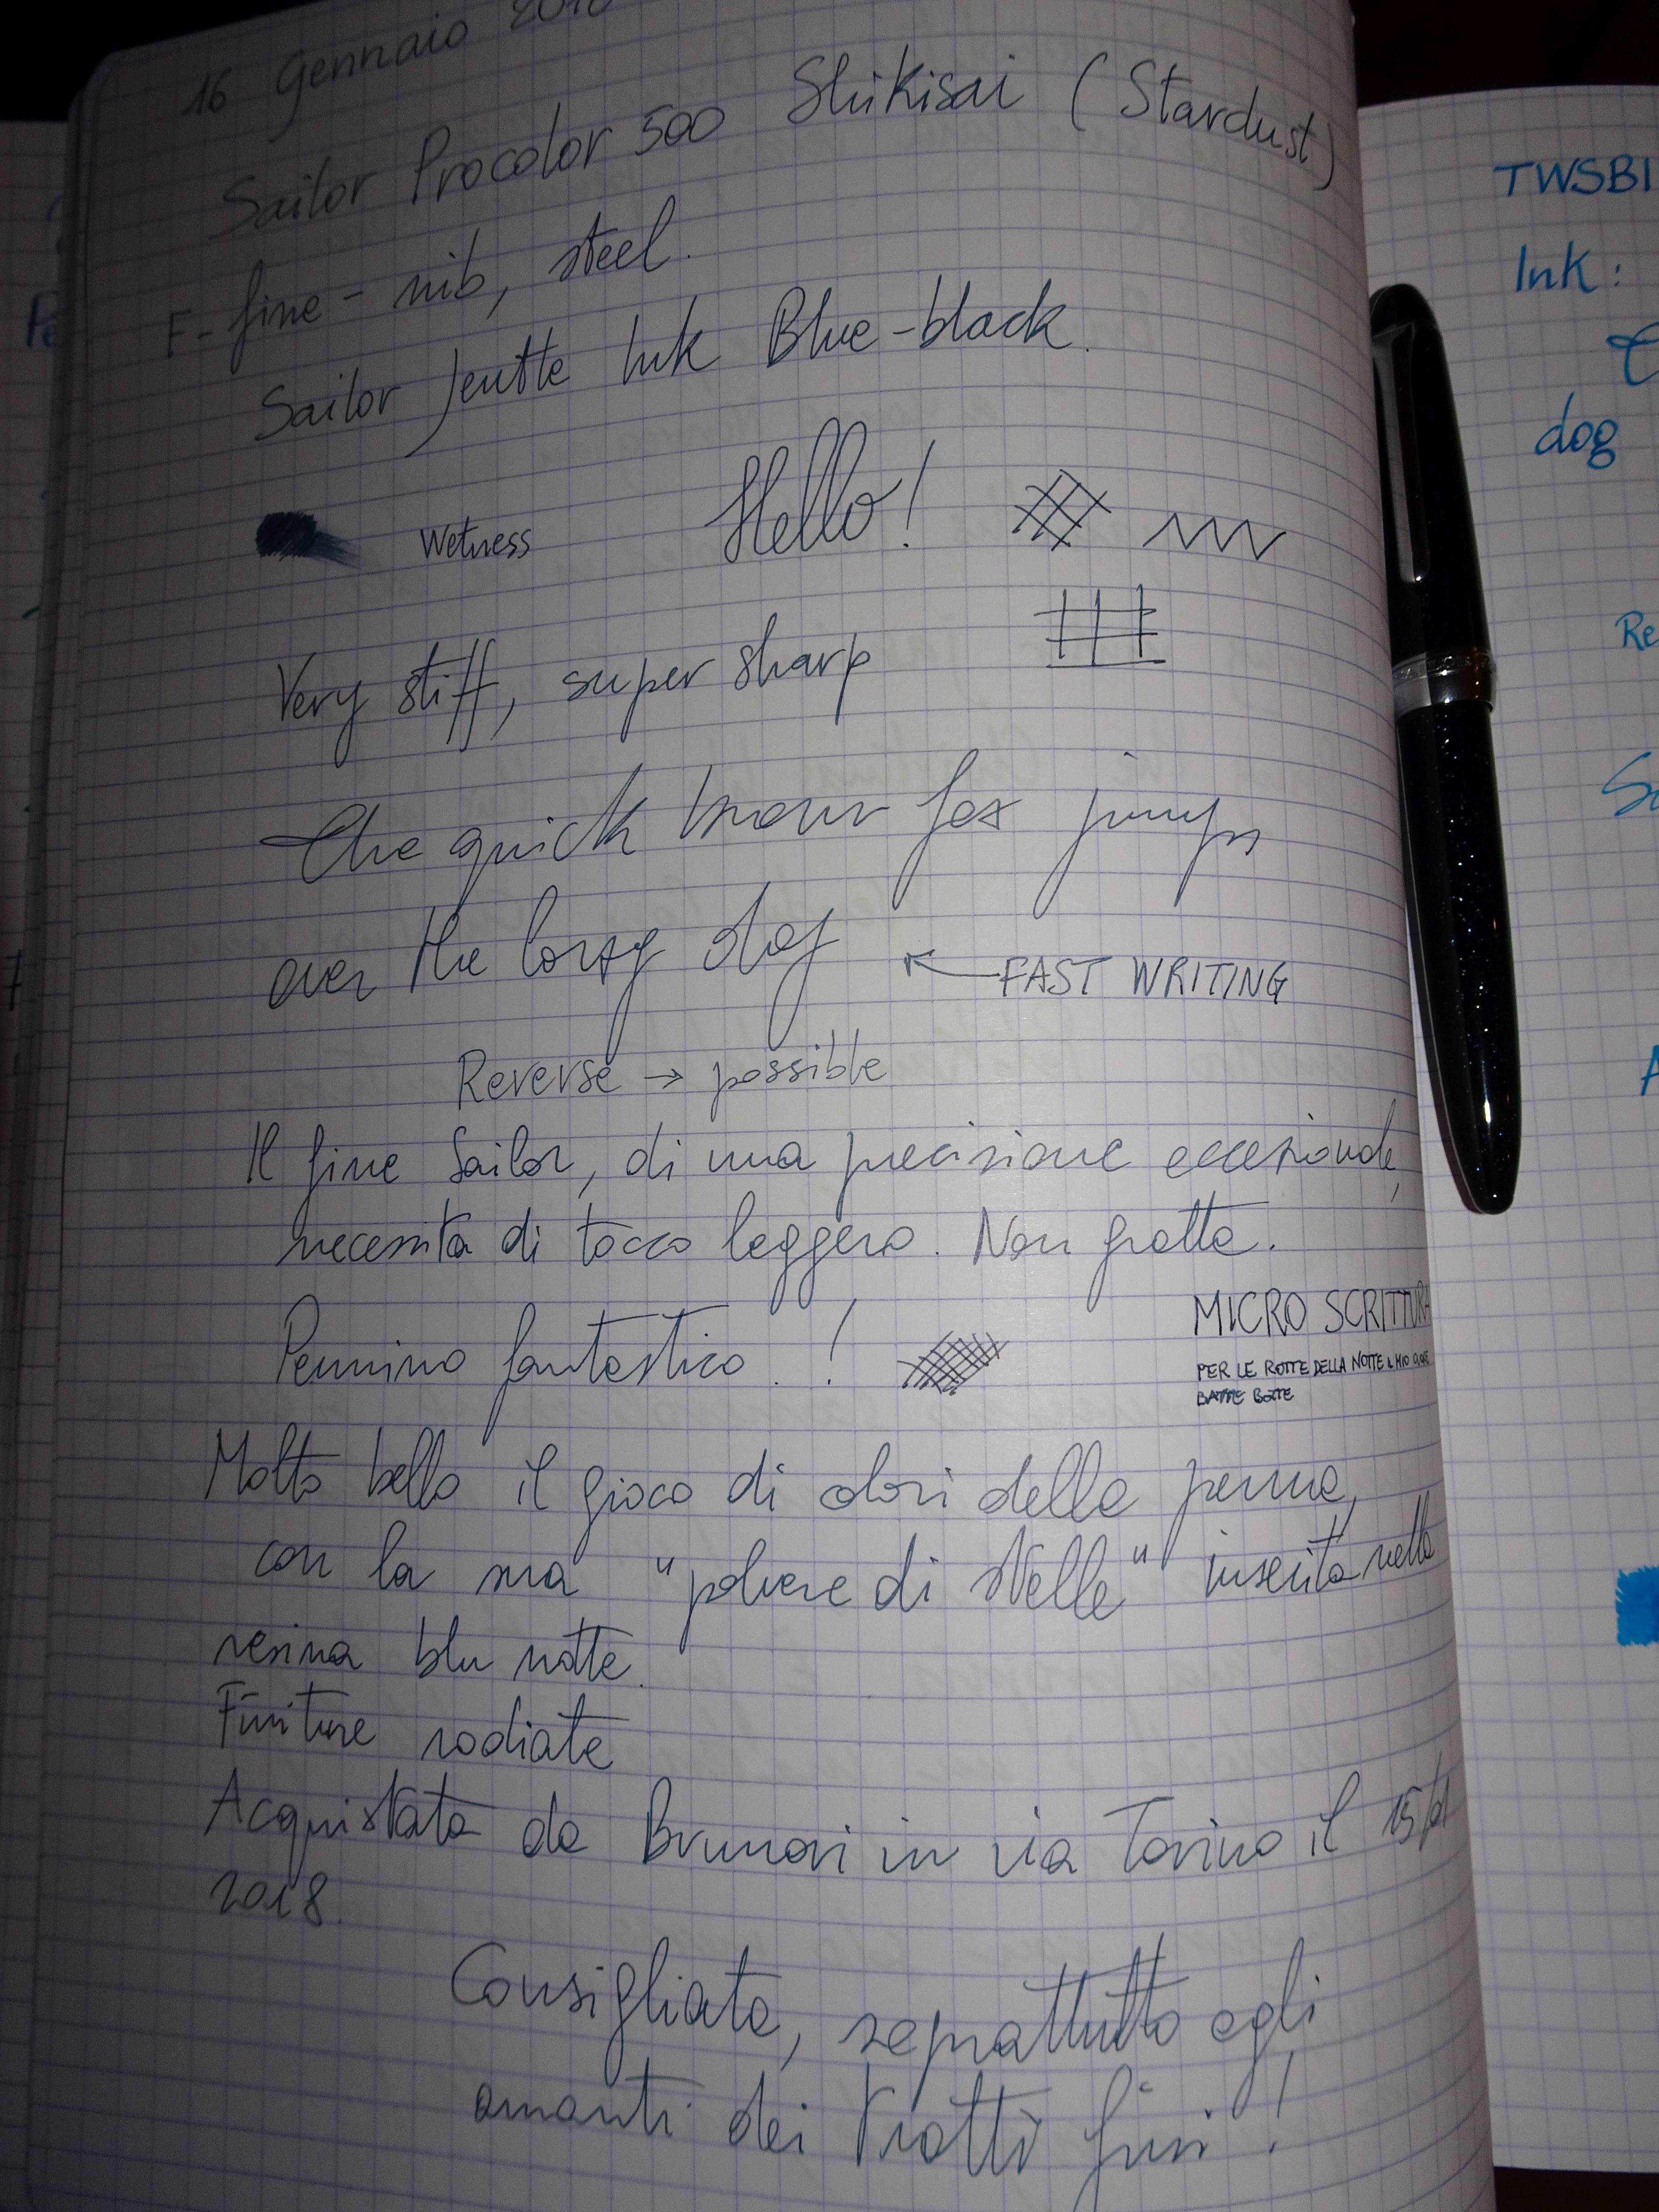 16 Gennaio
Sailor Procolor 500 Shikisai (Stardust)
F-fine-nib, steel.
Sailor Jentle Ink Blue-black.
Wetness Hello!
Very stiff, super sharp
The quick brown fox jumps
over the lazy dog
FAST WRITING
Reverse → possible
Il fine Sailor, di una precisione eccezionale,
necessita di tocco leggero. Non gratta.
Pennino fantastico!
MICRO SCRITTURA
PER LE ROTTE DELLA NOTTE IL MIO
BATTE
Molto bello il gioco di colori della penna,
con la sua "polvere di stelle" inserita nella
resina blu notte.
Finiture rodiate
Acquistata da Brunori in via Torino il 15/01
2018
Consigliata, soprattutto agli
amanti dei tratti fini!
TWSBI
Ink:
dog